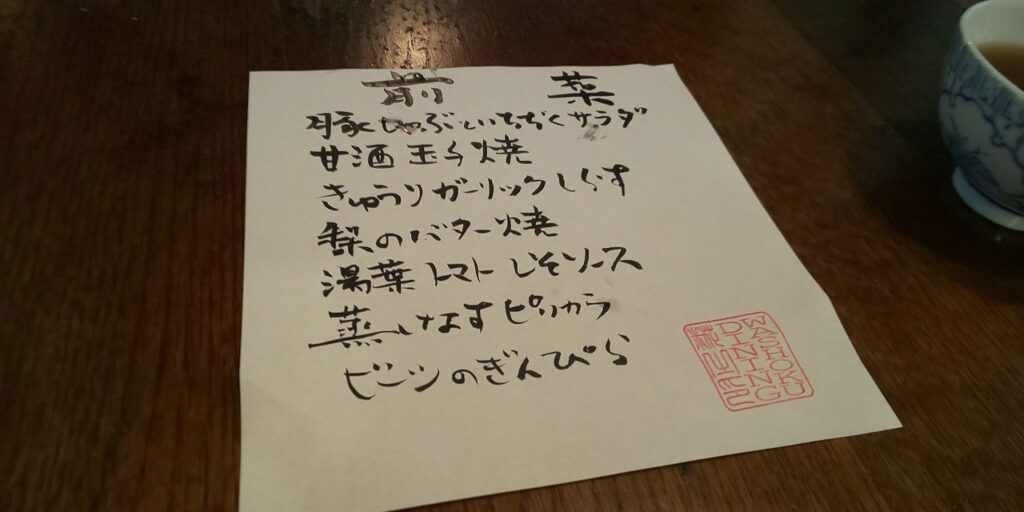 前 菜
豚しゃぶといちぢくサラダ
甘酒玉子焼
きゅうりガーリックしらす
梨のバター焼
湯葉トマトしそソース
蒸しなすピリカラ
ビーツのきんぴら
WASHOKU
DINING